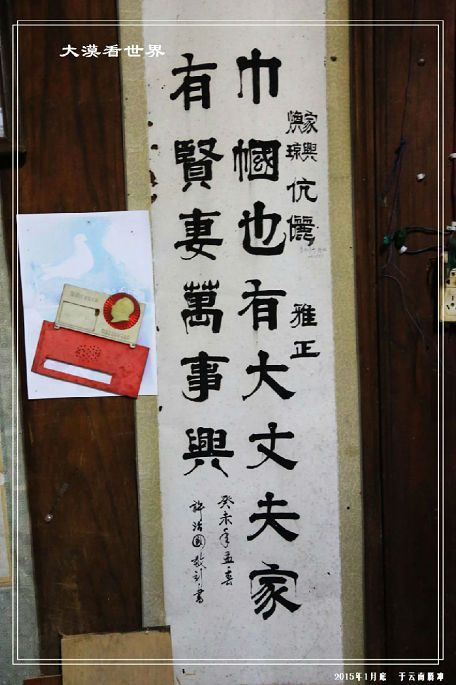 大漠看世界
家興
煥琼
伉儷 雅正
巾帼也有大丈夫家
有賢妻萬事興
癸未年孟春
許治國敬到書
2015年1月底 于云南腾冲